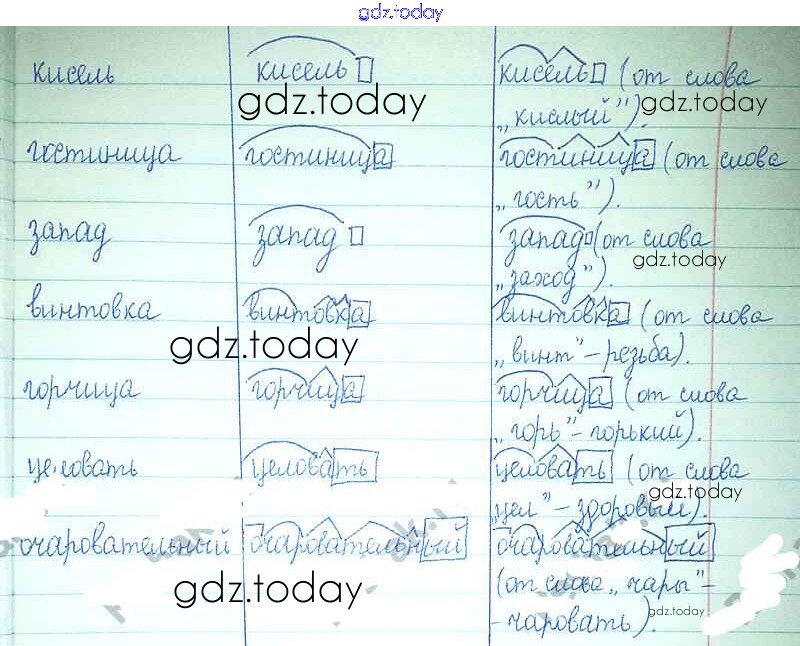 gdz.today
кисель кисель кисель (от слова
gdz.today gdz.today
„кислый").
гостиница гостиница гостиница (от слова
„гость").
запад запад запад (от слова
gdz.today
„заход").
винтовка винтовка винтовка (от слова
gdz.today
„винт"-резьба).
горчица горчица горчица (от слова
„горь"-горький).
целовать целовать целовать (от слова
gdz.today
„цел"-здоровый).
очаровательный очаровательный очаровательный
gdz.today
(от слова „чары"-
gdz.today
-чаровать).